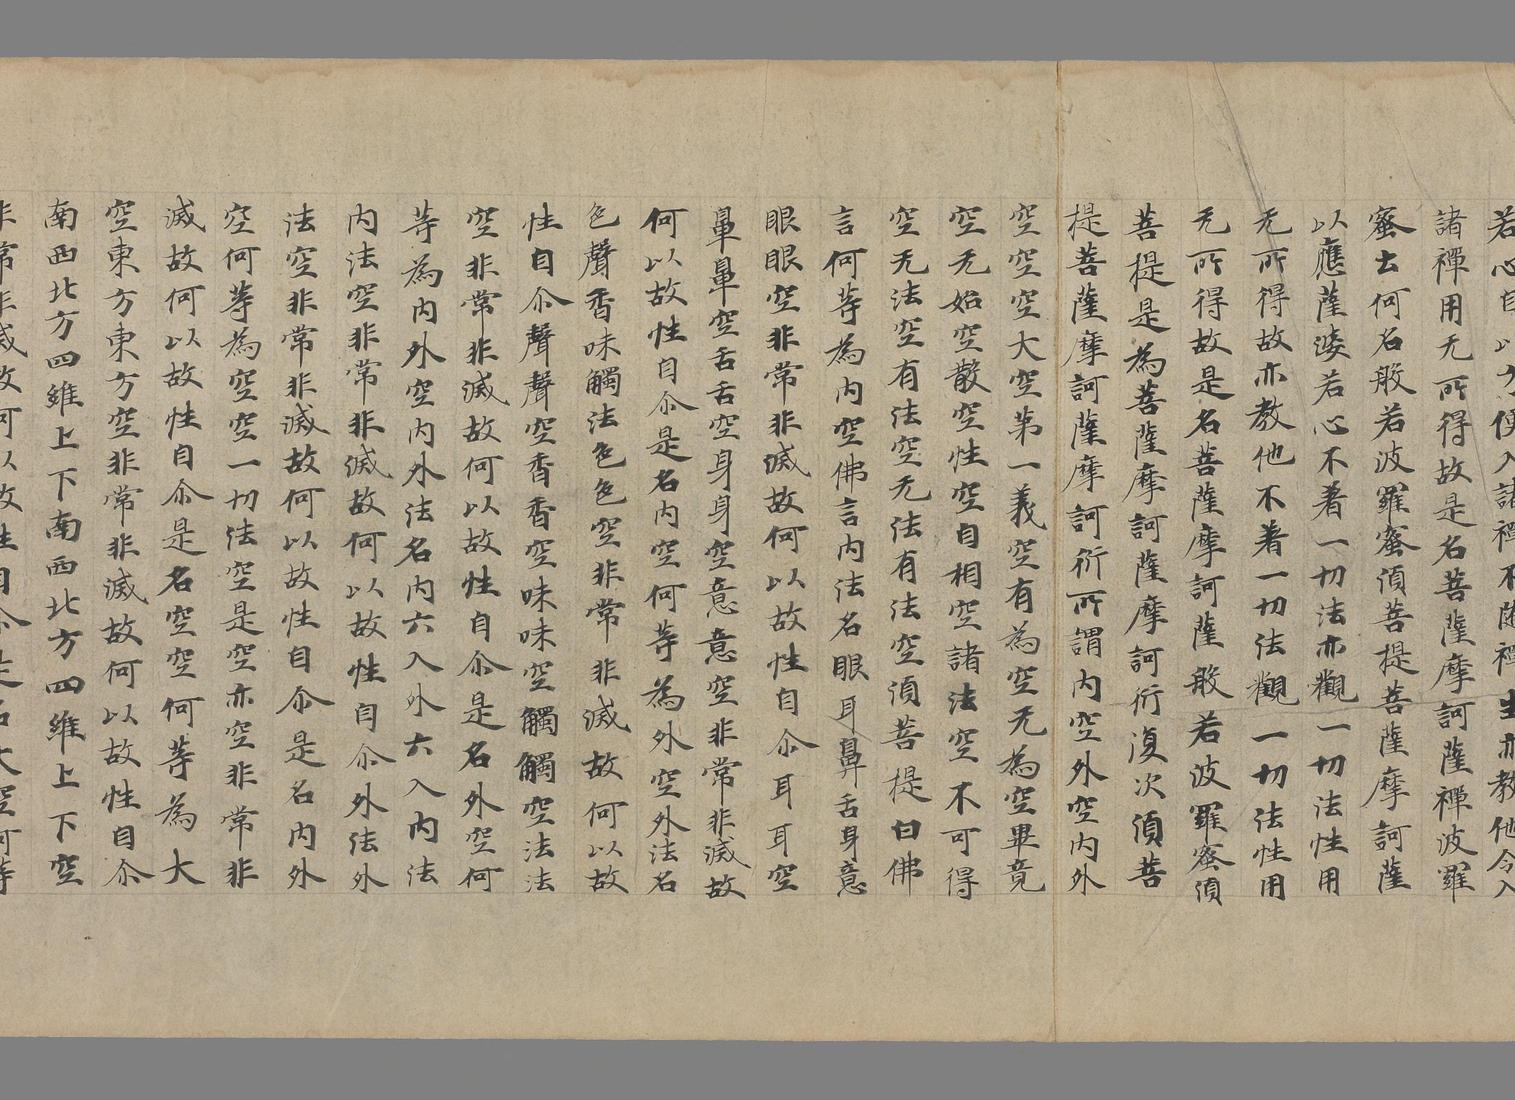 諸禪用无所得故是名菩薩摩訶薩禪波羅
蜜云何名般若波羅蜜須菩提菩薩摩訶薩
以應薩婆若心不著一切法亦觀一切法性用
无所得故亦教他不著一切法觀一切法性用
无所得故是名菩薩摩訶薩般若波羅蜜須
菩提是為菩薩摩訶薩摩訶衍復次須菩
提菩薩摩訶薩摩訶衍所謂內空外空內外
空空空大空第一義空有為空无為空畢竟
空无始空散空性空自相空諸法空不可得
空无法空有法空无法有法空須菩提白佛
言何等為內空佛言內法名眼耳鼻舌身意
眼眼空非常非滅故何以故性自尒耳耳空
鼻鼻空舌舌空身身空意意空非常非滅故
何以故性自尒是名內空何等為外空外法名
色聲香味觸法色色空非常非滅故何以故
性自尒聲聲空香香空味味空觸觸空法法
空非常非滅故何以故性自尒是名外空何
等為內外空內外法名內六入外六入內法
內法空非常非滅故何以故性自尒外法外
法空非常非滅故何以故性自尒是名內外
空何等為空空一切法空是空亦空非常非
滅故何以故性自尒是名空空何等為大
空東方東方空非常非滅故何以故性自尒
南西北方四維上下南西北方四維上下空